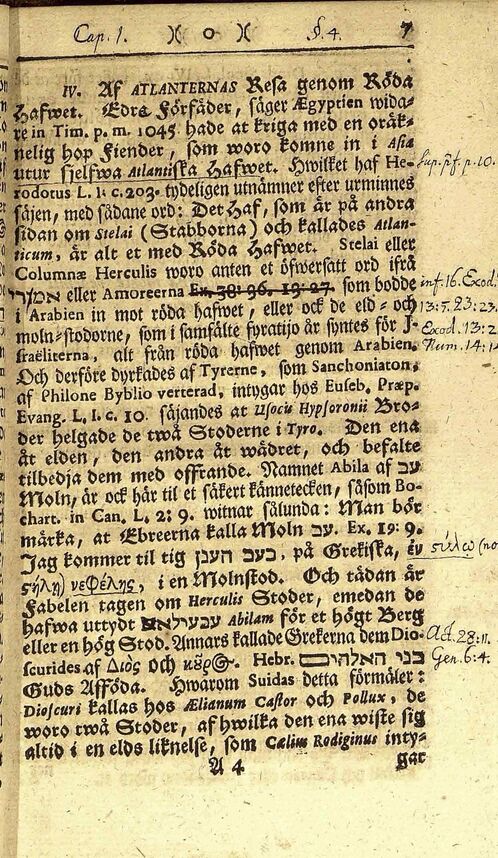 Cap. 1. )( o )( §. 4. 7
IV. Af ATLANTERNAS Resa genom Röda
Hafwet. Edra Förfäder, säger Ægyptien wida-
re in Tim. p. m. 1045. hade at kriga med en oräk-
nelig hop Fiender, som woro komne in i Asia
utur sjelfwa Atlantiska Hafwet. Hwilket haf He-
rodotus L. 1. c. 203. tydeligen utnämner efter urminnes
säjen, med sådane ord: Det Haf, som är på andra
sidan om Stelai (Stabborna) och kallades Atlan-
ticum, är alt et med Röda Hafwet. Stelai eller
Columnæ Herculis woro anten et öfwersatt ord ifrå
eller Amoreerna Ex. 38: 96. 13: 27. som bodde inf. 16. Exod.
i Arabien in mot röda hafwet, eller ock de eld- och 13: 7. 23: 23.
moln-stodorne, som i samfälte fyratijo år syntes för J- Exod. 13: 2
sraëliterna, alt från röda hafwet genom Arabien. Num. 14: 14
Och derföre dyrkades af Tyrerne, som Sanchoniaton,
af Philone Byblio verterad, intygar hos Euseb. Præp.
Evang. L. I. c. 10. säjandes at Usocis Hypsoronii Bro-
der helgade de twå Stoderne i Tyro. Den ena
åt elden, den andra åt wädret, och befalte
tilbedja dem med offrande. Namnet Abila af עב
Moln, är ock här til et säkert kännetecken, såsom Bo-
chart. in Can. L. 2: 9. witnar sålunda: Man bör
märka, at Ebreerna kalla Moln עב. Ex. 19: 9.
Jag kommer til tig בעב הענן, på Grekiska, ἐν στύλῳ (no
ςήλῃ) νεφέλης, i en Molnstod. Och tädan är
Fabelen tagen om Herculis Stoder, emedan de
hafwa uttydt Abilam för et högt Berg
eller en hög Stod. Annars kallade Grekerna dem Dio- Act. 28: 11.
scurides af Διὸς och κοῦρος. Hebr. בני האלהים Gen. 6: 4.
Guds Afföda. Hwarom Suidas detta förmäler:
Dioscuri kallas hos Ælianum Castor och Pollux, de
woro twå Stoder, af hwilka den ena wiste sig
altid i en elds liknelse, som Cælius Rodiginus inty-
A 4 gar